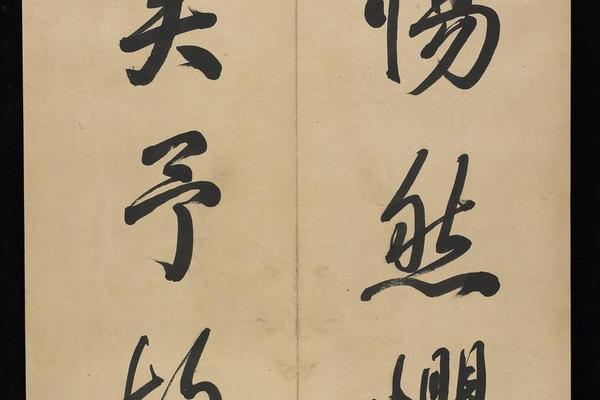 惕然懼
矣予